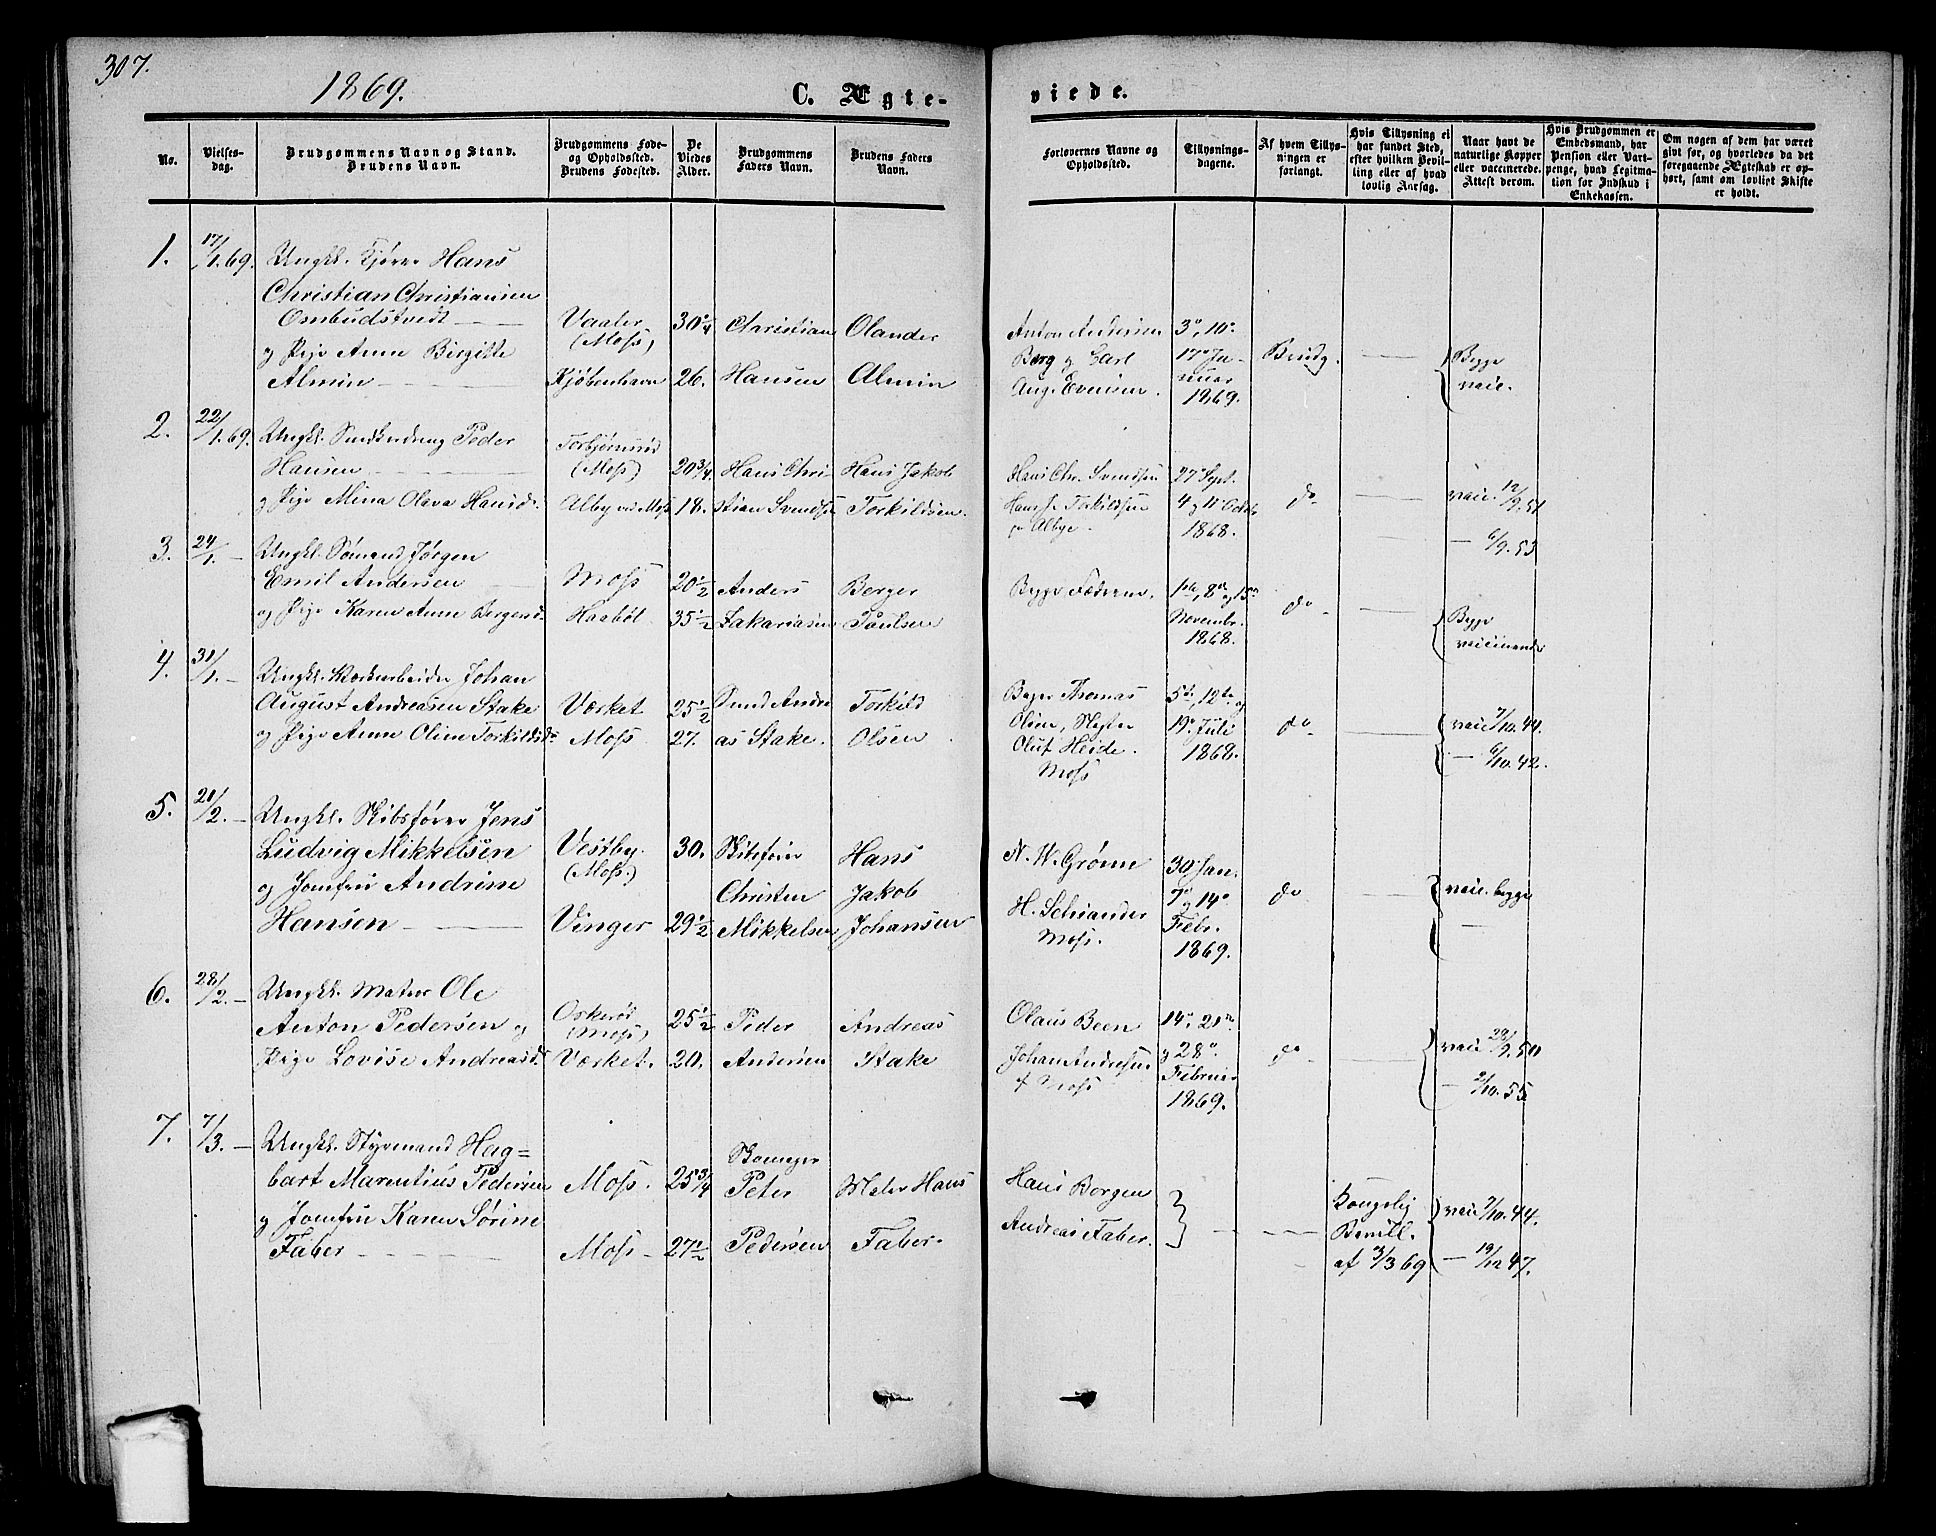 307.
1869.
C. Ægte-
viede.
No.
Vielses-
dag.
Brudgommens Navn og Stand.
Brudens Navn.
Brudgommens Føde-
og Opholdssted.
Brudens Fødested.
De
Viedes
Alder.
Brudgommens
Faders Navn.
Brudens Faders
Navn.
Forlovernes Navne og
Opholdssted.
Tillysnings-
dagene.
Af hvem Tillys-
ningen er
forlangt.
Hvis Tillysning ei
har fundet Sted,
efter hvilken Bevil-
ling eller af hvad
lovlig Aarsag.
Naar havt de
naturlige Kopper
eller vaccinerede.
Attest derom.
Hvis Brudgommen er
Embedsmand, har
Pension eller Vart-
penge, hvad Legitima-
tion for Indskud i
Enkekassen.
Om nogen af dem har været
gift før, og hvorledes da det
foregaaende Ægteskab er op-
hørt, samt om lovligt Skifte
er holdt.
1.
17/1.69.
Ungkl. Kjører Hans
Christian Christiansen
Ombudstvedt
og Pige Anne Birgitte
Almin
Vaaler
(Moss)
Kjøbenhavn
30 1/4
26.
Christian
Hansen
Olander
Almin
Anton Andersen
Berg og Carl
Aug. Evensen.
3', 10'
17' Ja-
nuar
1869.
Brudg.
Begge
vacc.
2.
22/1.69.
Ungkl. Peder
Hansen
og Pige Mina Olava Hansd.
Torbjørnsrød
(Moss)
Alby v. Moss
20 3/4
18.
Hans Chri-
stian Svendsen
Hans Jakob
Torkildsen.
Hans Chr. Svendsen
Hans J. Torkildsen
pr Albye.
27' Sept.
4' og 11' Octob.
1868.
do
vacc. 12/9.51
— 6/9.53
3.
24/1. —
Ungkl. Sømand Jørgen
Emil Andersen
og Pige Karen Anne Bergersd.
Moss
Haabøl
20 1/2
35 1/2
Anders
Zakariasen
Berger
Paulsen
Begge Fædrene.
1ste, 8de og 15de
Novembr.
1868.
do
Begge
vaccinerede
4.
31/1. —
Ungkl. Værksarbeider Johan
August Andreasen Stake
og Pige Anne Oline Torkildsd.
Værket
Moss
25 1/2
27.
Smed Andre
as Stake.
Torkild
Olsen
Bager Thomas
Olsen, Slagter
Oluf Heide.
Moss
5te, 12te og
19' Juli
1868.
do
vacc 7/10.44.
— 6/10.42.
5.
21/2. —
Ungkl. Skibsfører Jens
Ludvig Mikkelsen
og Jomfru Andrine
Hansen
Vestby
(Moss.)
Vinger
30.
29 1/2
Skibsfører
Christen
Mikkelsen
Hans
Jakob
Johansen
N. W. Grønn
H. Schiander
Moss.
30' Jan.
7' og 14'
Febr.
1869.
do
vacc. begge
—
6.
28/2. —
Ungkl. Matros Ole
Anton Pedersen og
Pige Lovise Andreasd.
Oskerød
(Moss)
Værket.
25 1/2
20.
Peder
Andersen
Andreas
Stake
Olaus Been
Johan Andresen
af Moss
14', 21'
og 28'
Februar
1869.
do
vacc 29/9.50
— 2/10.55
7.
7/3. —
Ungkl. Styrmand Hag=
bart Marentius Pedersen
og Jomfru Karen Sørine
Faber
Moss.
Moss
25 3/4
27 1/2
Peter
Pedersen
Maler Hans
Faber.
Hans Borgen
Andreas Faber.
Kongelig
Bevill.
af 3/3 69
vacc 7/10.44.
— 19/12 47.